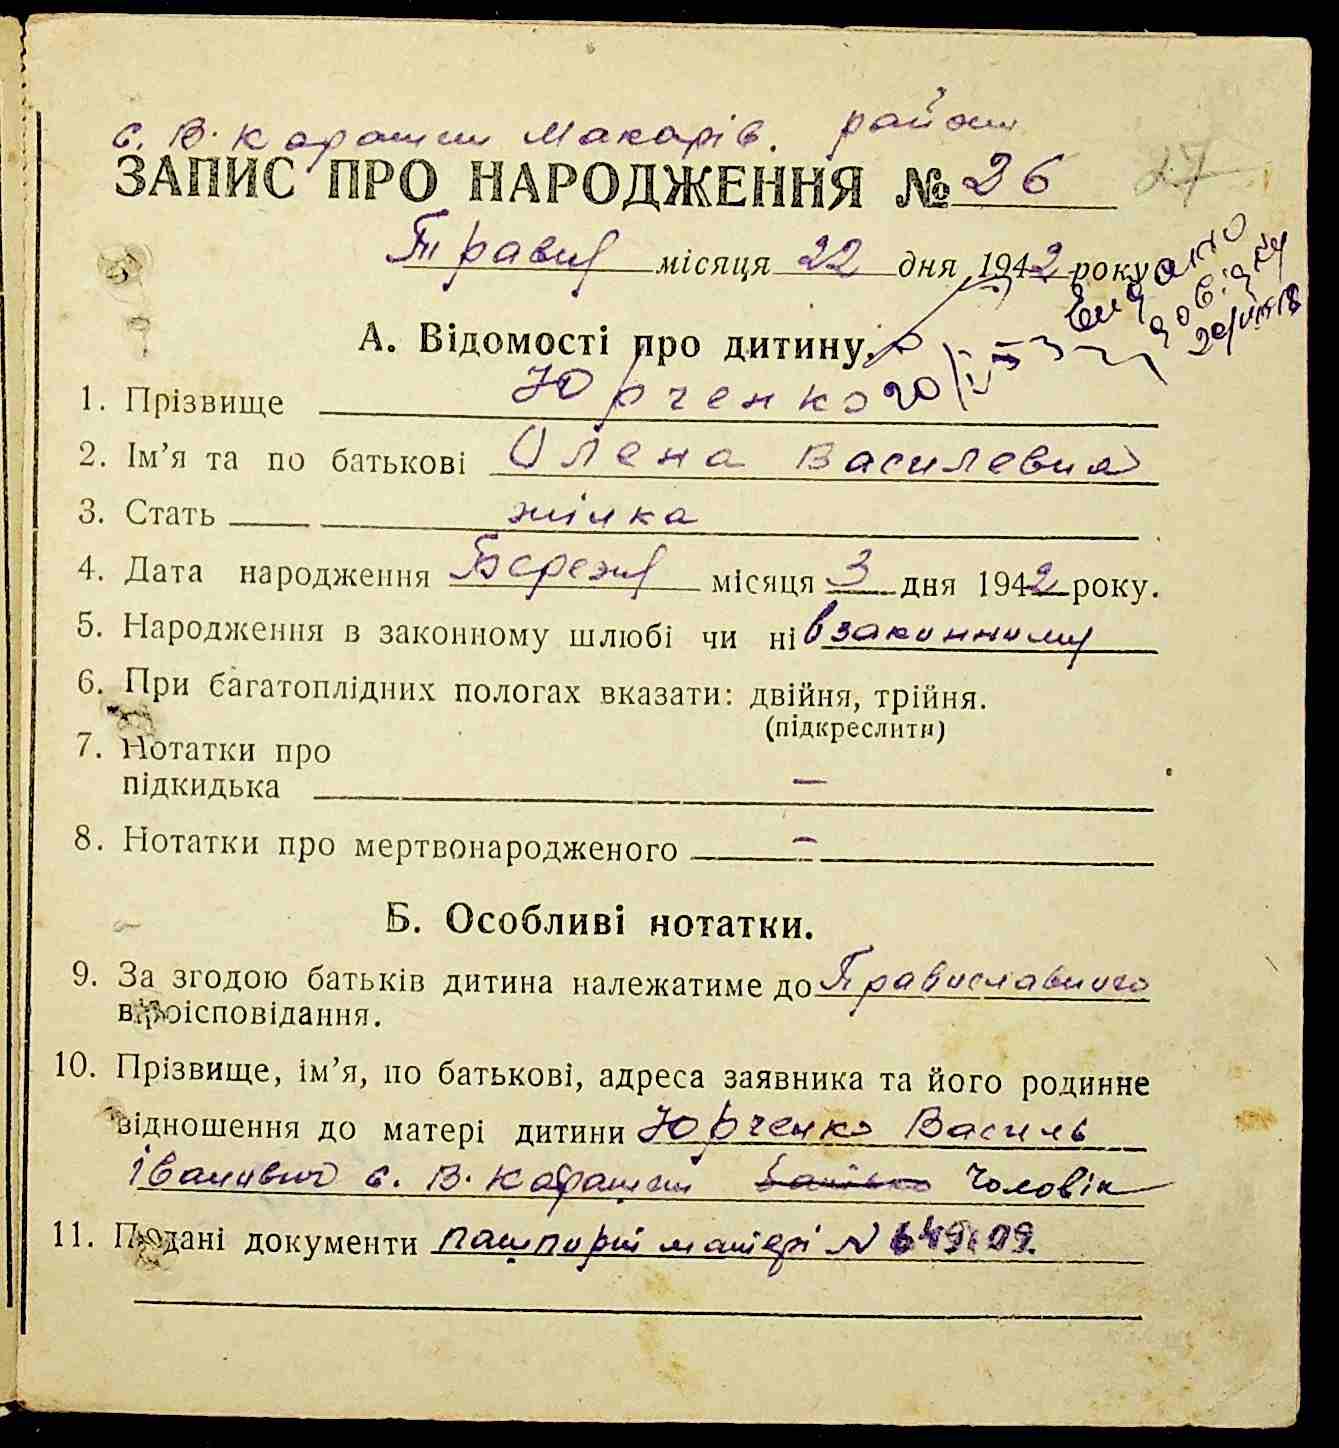 с. В. Карашин Макарів. район
ЗАПИС ПРО НАРОДЖЕННЯ № 26 27
Травня місяця 22 дня 1942 року
Видано
довідку
А. Відомості про дитину.
1. Прізвище Юрченко
2. Ім’я та по батькові Олена Василевна
3. Стать жінка
4. Дата народження Березня місяця 3 дня 1942 року.
5. Народження в законному шлюбі чи ні в законному
6. При багатоплідних пологах вказати: двійня, трійня.
(підкреслити)
7. Нотатки про
підкидька —
8. Нотатки про мертвонародженого —
Б. Особливі нотатки.
9. За згодою батьків дитина належатиме до Православного
віроісповідання.
10. Прізвище, ім’я, по батькові, адреса заявника та його родинне
відношення до матері дитини Юрченко Василь
Іванович с. В. Карашин батько Чоловік
11. Подані документи пашпорт матері N 649109.